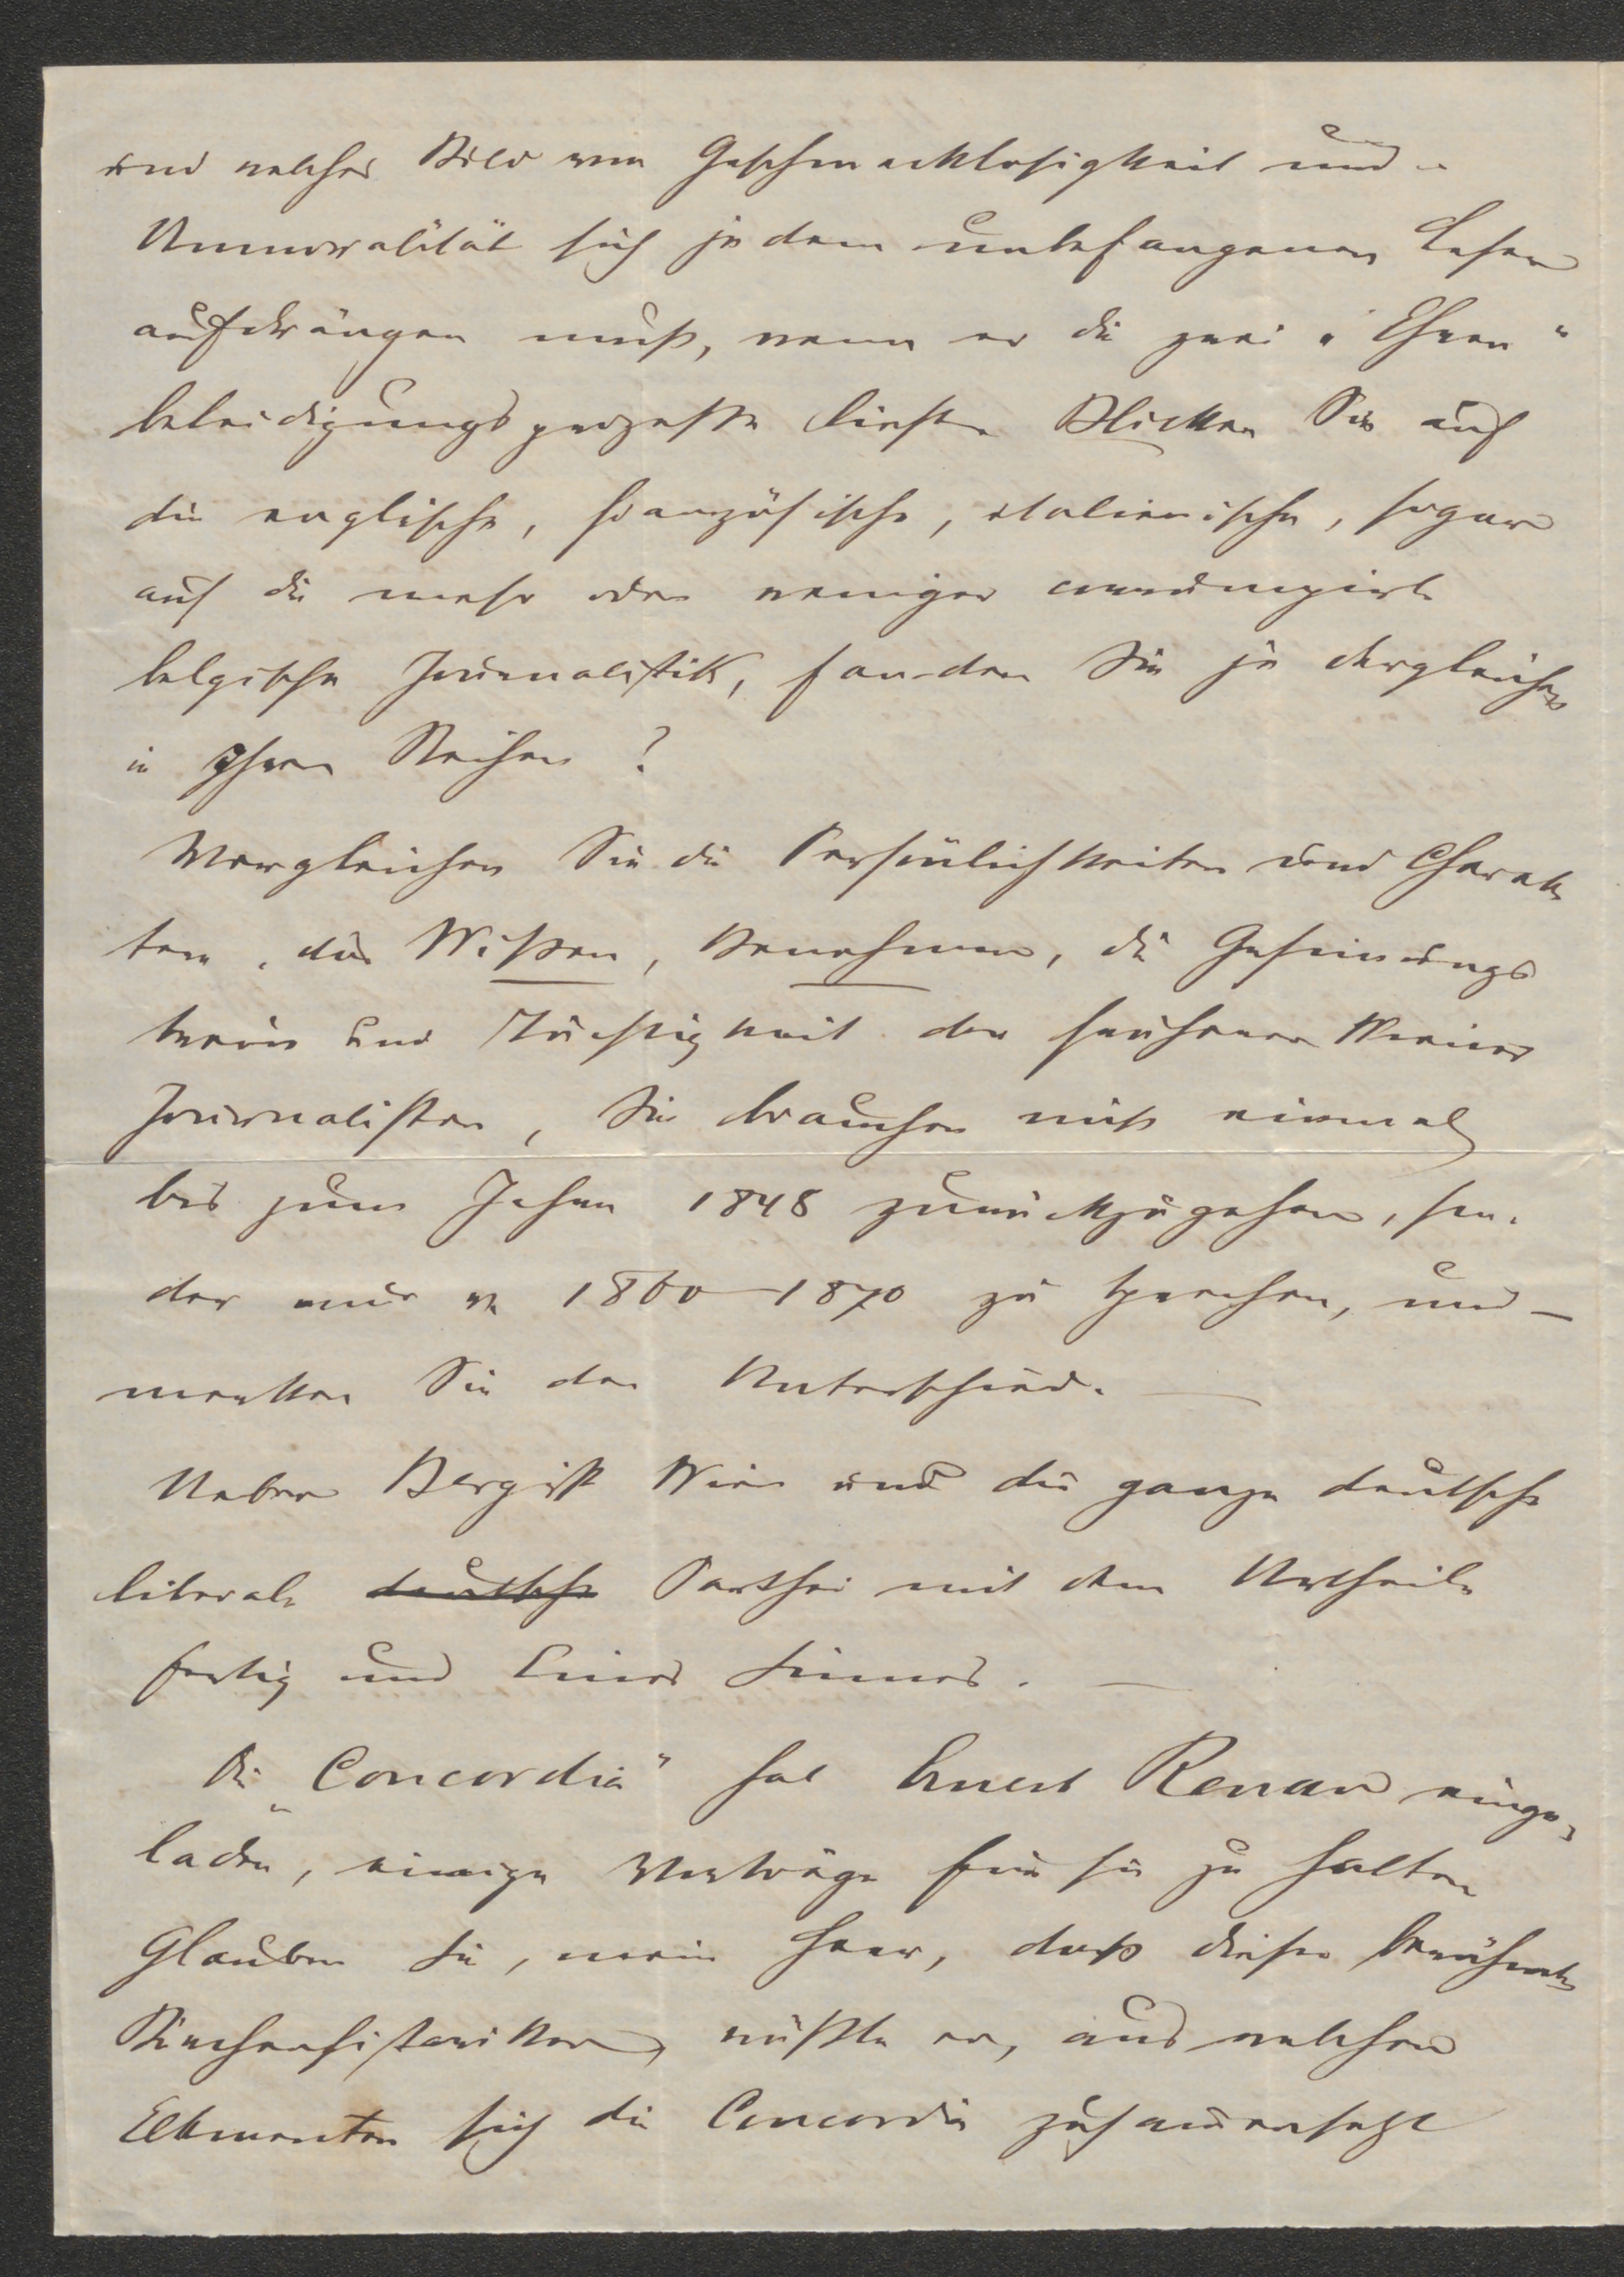 und welches Bild von Geschmacklosigkeit und
Unmoralität sich jedem unbefangenen Leser
aufdrängen muß, wenn er die zwei „Ehren"
beleidigungsprozesse liest. Blicken Sie auf
die englische, französische, italienische, sogar
auf die mehr oder weniger corrumpirte
belgische Journalistik, fanden Sie je dergleichen
in Ihren Reihen?
Vergleichen Sie die Persönlichkeiten und Charak
tere, das Wissen, Benehmen, die Gesinnungs
treue und Tüchtigkeit der früheren Wiener
Journalisten, Sie brauchen nicht einmal
bis zum Jahre 1848 zurückzugehen, son-
der nur v 1860–1870 zu sprechen, und –
merken Sie den Unterschied. —
Ueber Bergist Wien und die ganze deutsche
liberale deutsche Parthei mit dem Urtheile
fertig und Eines Sinnes. —
Die „Concordia" hat Ernest Renan einge-
laden, einige Vorträge für sie zu halten
Glauben Sie, mein Herr, daß dieser berühmte
Kirchenhistoriker, wüßte er, aus welchen
Elementen sich die Concordia zusammensetzt